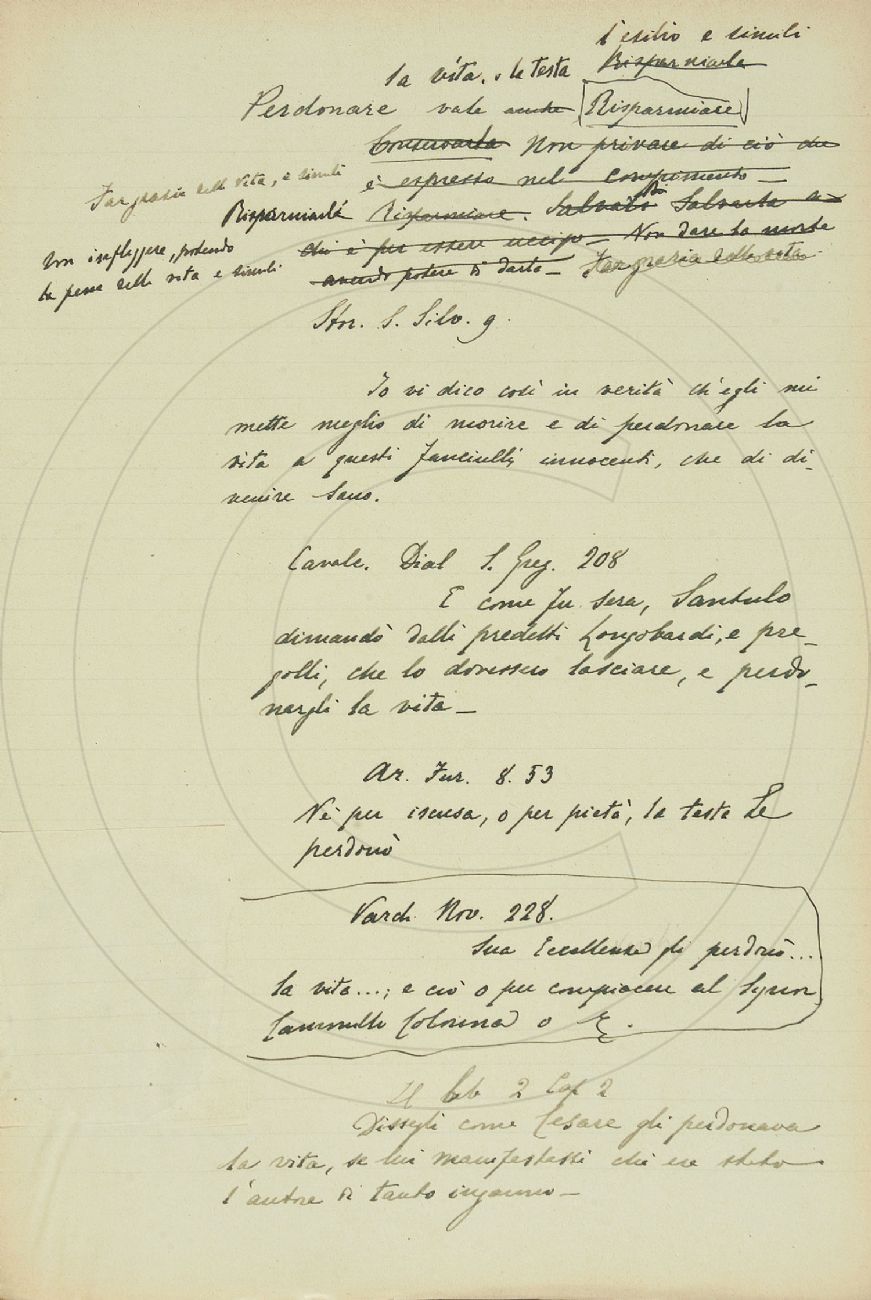 l'esilio e simili
la vita, o la testa Risparmiarla
Perdonare vale anche Risparmiare
Conservarla Non privare di ciò che
è espresso nel compimento —
Far grazia della vita, e simili
Risparmiarla Risparmiare. Salvarla a
chi è per essere ucciso — Non dare la morte
Non infliggere, potendo
la pena della vita e simili
avendo potere di darla — Far grazia della vita
Stor. S. Silv. 9.
Io vi dico così in verità ch'egli mi
mette meglio di morire e di perdonare la
vita a questi fanciulli innocenti, che di di-
venire sano.
Cavalc. Dial S. Greg. 208
E come fu sera, Santulo
dimandò dalli predetti Longobardi, e pre-
golli, che lo dovessero lasciare, e perdo-
nargli la vita —
Ar. Fur. 8. 53
Nè per iscusa, o per pietà, la testa Le
perdonò
Varch. Nov. 228.
Sua Eccellenza gli perdonò...
la vita...; e ciò o per compiacere al Signor
Cammillo Colonna o
2 Cap 2
Dissegli come Cesare gli perdonava
la vita, se lui manifestassi chi era stato
l'autore di tanto inganno —